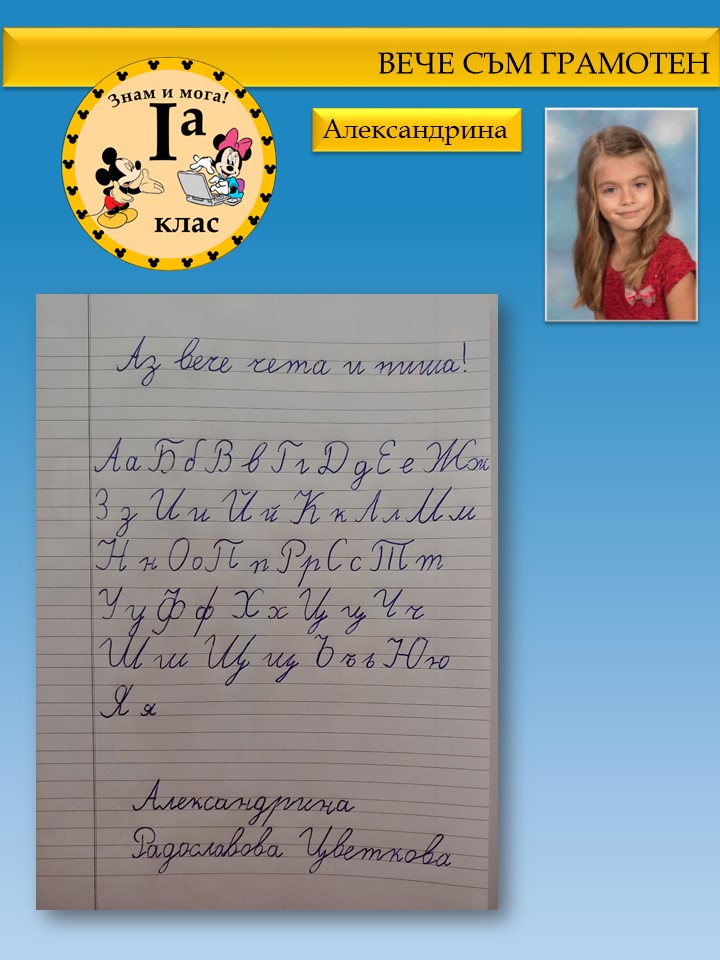 ВЕЧЕ СЪМ ГРАМОТЕН
Знам и мога!
Iа
клас
Александрина
Аз вече чета и пиша!
Аа Бб Вв Гг Дд Ее Жж
Зз Ии Йй Кк Лл Мм
Нн Оо Пп Рр Сс Тт
Уу Фф Хх Цц Чч
Шш Щщ Ъъь Юю
Яя
Александрина
Радославова Цветкова